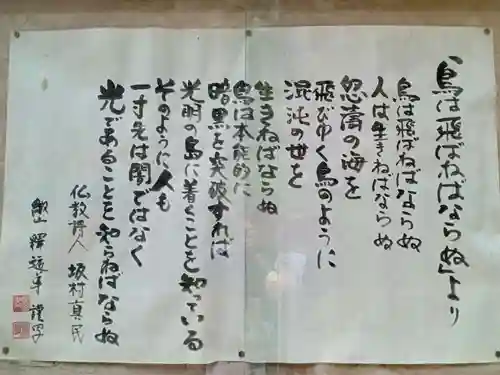 「鳥は飛ばねばならぬ」より
鳥は飛ばねばならぬ
人は生きねばならぬ
怒濤の海を
飛びゆく鳥のように
混沌の世を
生きねばならぬ
鳥は本能的に
暗黒を突破すれば
光明の島に着くことを知っている
そのように人も
一寸先は闇ではなく
光であることを知らねばならぬ
仏教詩人 坂村真民
謹写